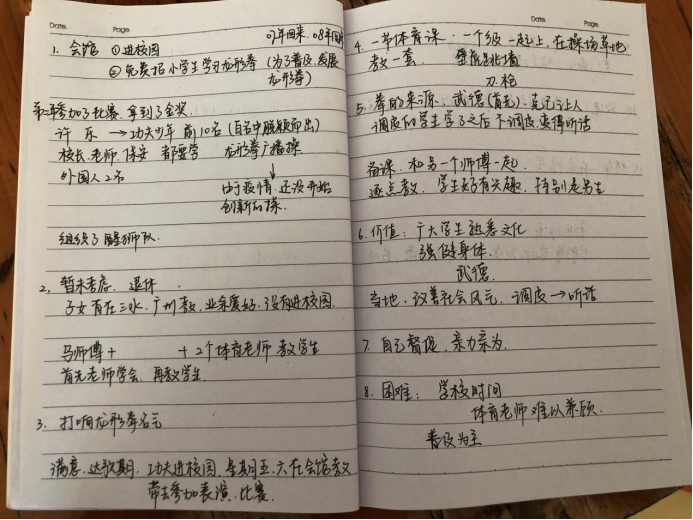 Date. Page.
07年回来 08年国
1. 会馆 ①进校园
②免费招小学生学习龙形拳 (为了普及、发展
龙形拳)
第二年参加了比赛, 拿到了金奖.
许 乐 → 功夫少年 前10名 (百名中脱颖而出)
校长、老师、保安 都要学 龙形拳广播操
外国人2名
由于疫情, 还没开始
创新的操.
组织了醒狮队.
2. 暂未考虑, 退休
子女有在三水、广州教, 业余爱好, 没有进校园.
马师傅 + + 2个体育老师 教学生
首先老师学会, 再教学生
3. 打响龙形拳名气
满意. 达致期. 功夫进校园 星期五、六在会馆教
带去参加表演、比赛.
Date. Page.
4. 一节体育课. 一个级一起上, 在操场草地
教一套.
刀. 枪
5. 拳的来源, 武德(首先). 克己让人
调皮的学生学了之后 不调皮 变得听话
备课. 和另一个师傅一起.
逐点教. 学生好有兴趣. 特别是男生
6. 价值: 广大学生熟悉文化
强健身体.
武德.
当地. 改善社会风气, 调皮→听话
7. 自己督促, 亲力亲为.
8. 困难: 学校时间
体育老师难以兼顾.
普及为主